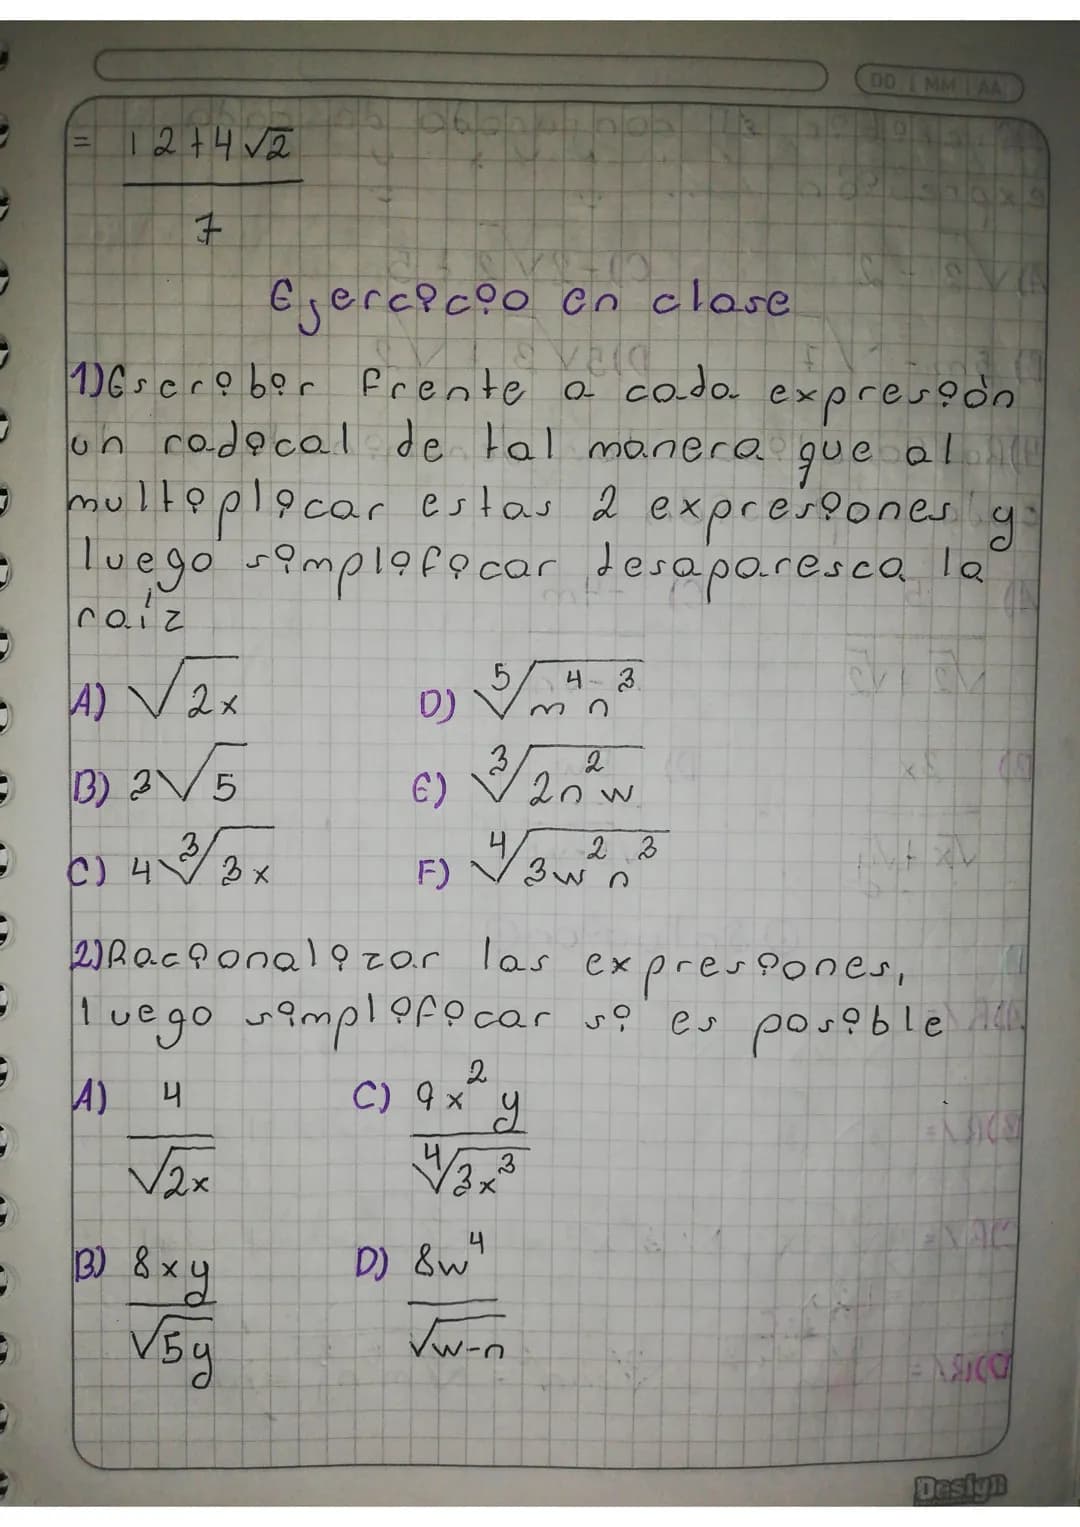 DD MM AA
= 12+4√2
7
Ejercicio en clase
1) Escribir frente a cada expresión
un radical de tal manera que al
multiplicar estas 2 expresiones y
luego simplificar desaparesca la
raíz
A) √2x
D) ⁵√m⁴n³
B) 3√5
E) ³√2n²w
C) 4³√3x
F) ⁴√3w²n³
2) Racionalizar las expresiones,
luego simplificar si es posible
A) 4
√2x
C) 9x²y
⁴√3x³
B) 8xy
√5y
D) 8w⁴
√w-n
Design